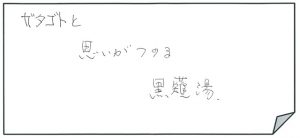 ガタゴトと
思いがつのる
黒薙湯.